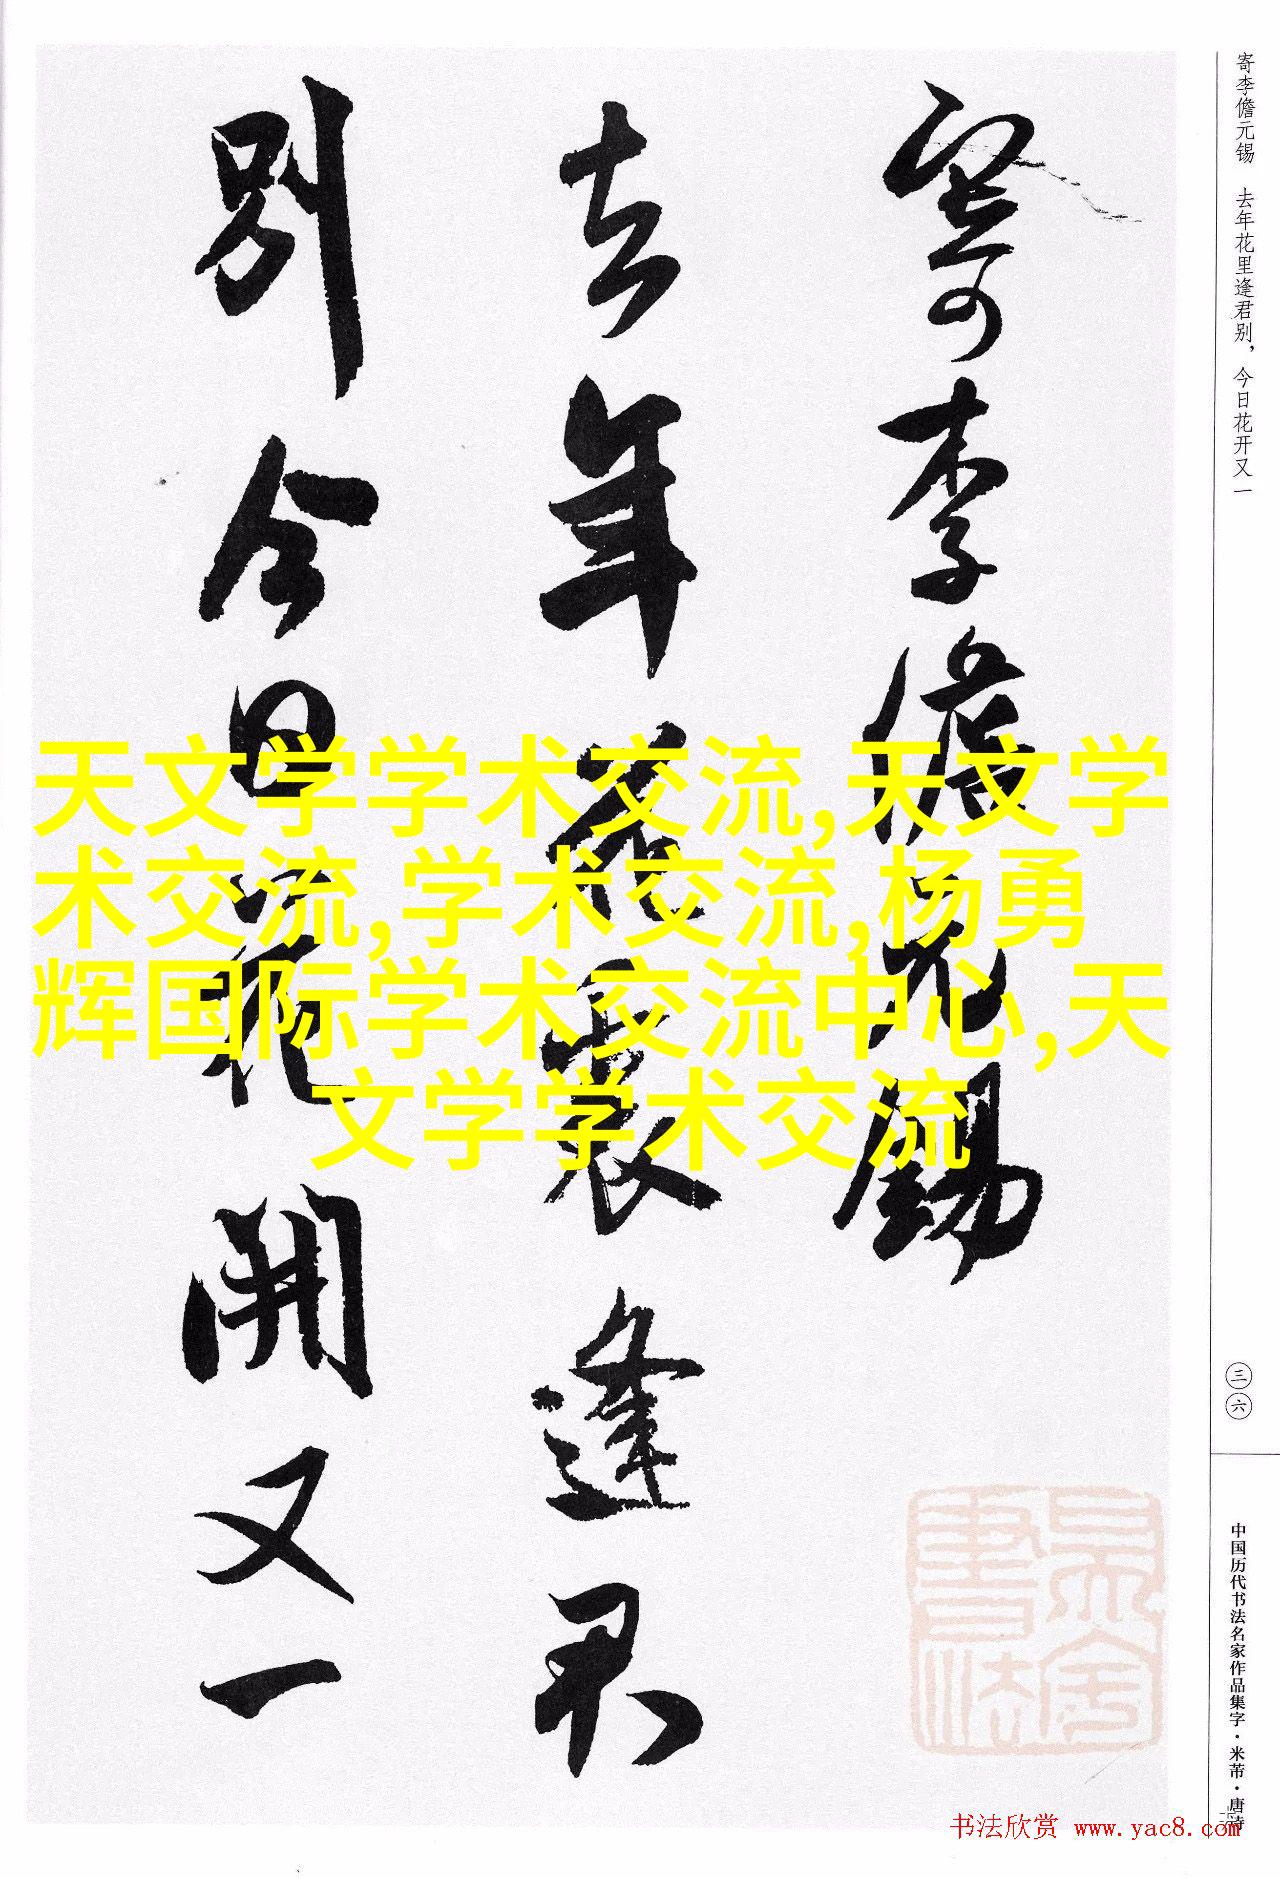 寄李儋元锡　去年花里逢君别，今日花开又一
寄李儋元錫
去年花裏逢君
别今日花開又一
天文学学术交流,天文学
术交流,学术交流,杨勇
辉国际学术交流中心,天
文学学术交流
三六
中国历代书法名家作品集字·米芾·唐诗
书法欣赏 www.yac8.com